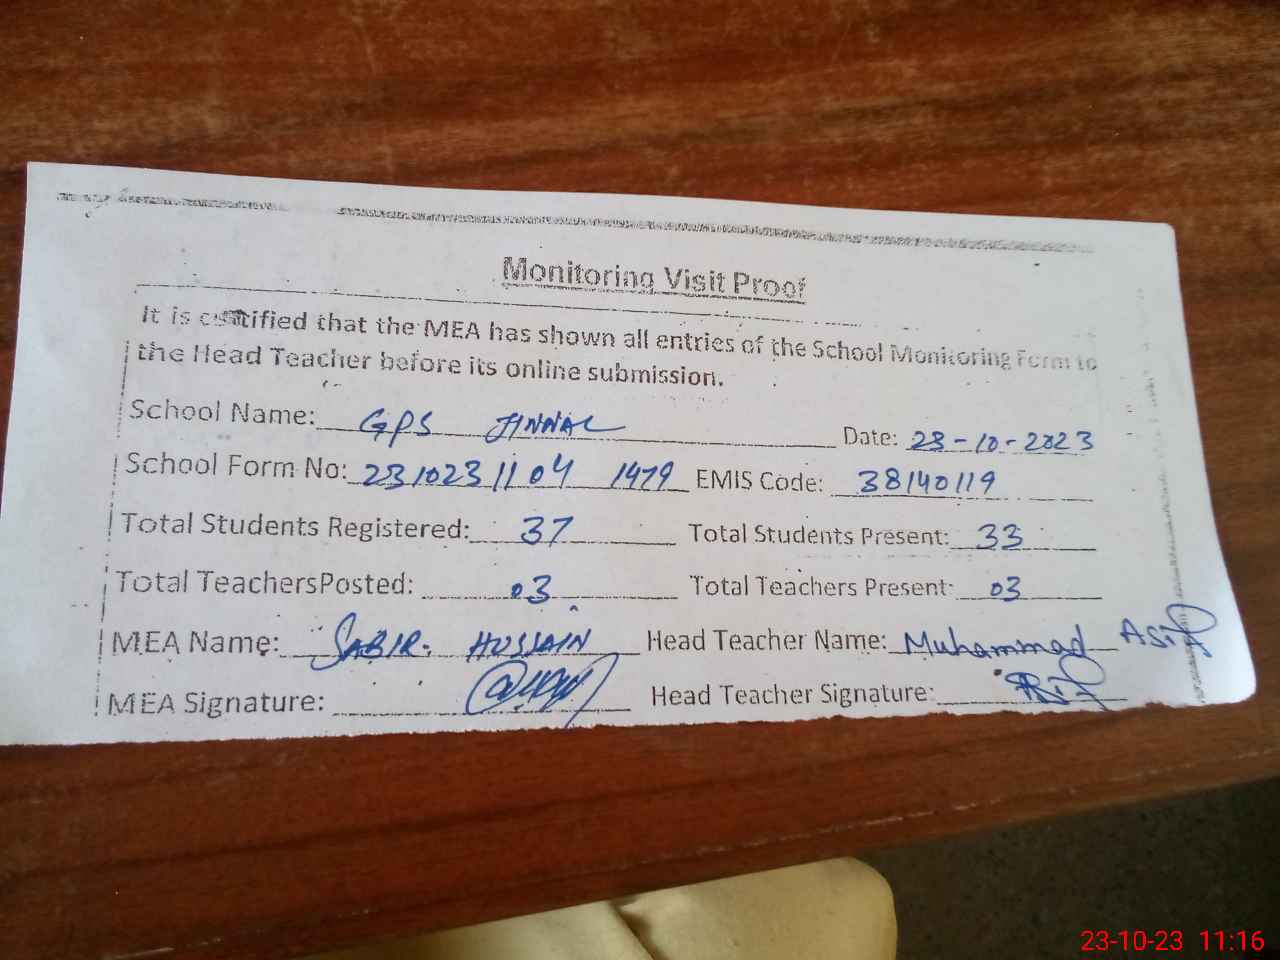 Monitoring Visit Proof
It is certified that the MEA has shown all entries of the School Monitoring Form to
the Head Teacher before its online submission.
School Name: GPS JINNAH Date: 23-10-2023
School Form No: 231023 1104 1479 EMIS Code: 38140119
Total Students Registered: 37 Total Students Present: 33
Total TeachersPosted: 03 Total Teachers Present: 03
MEA Name: SABIR HUSSAIN Head Teacher Name: Muhammad Asif
MEA Signature: Head Teacher Signature: Asif
23-10-23 11:16